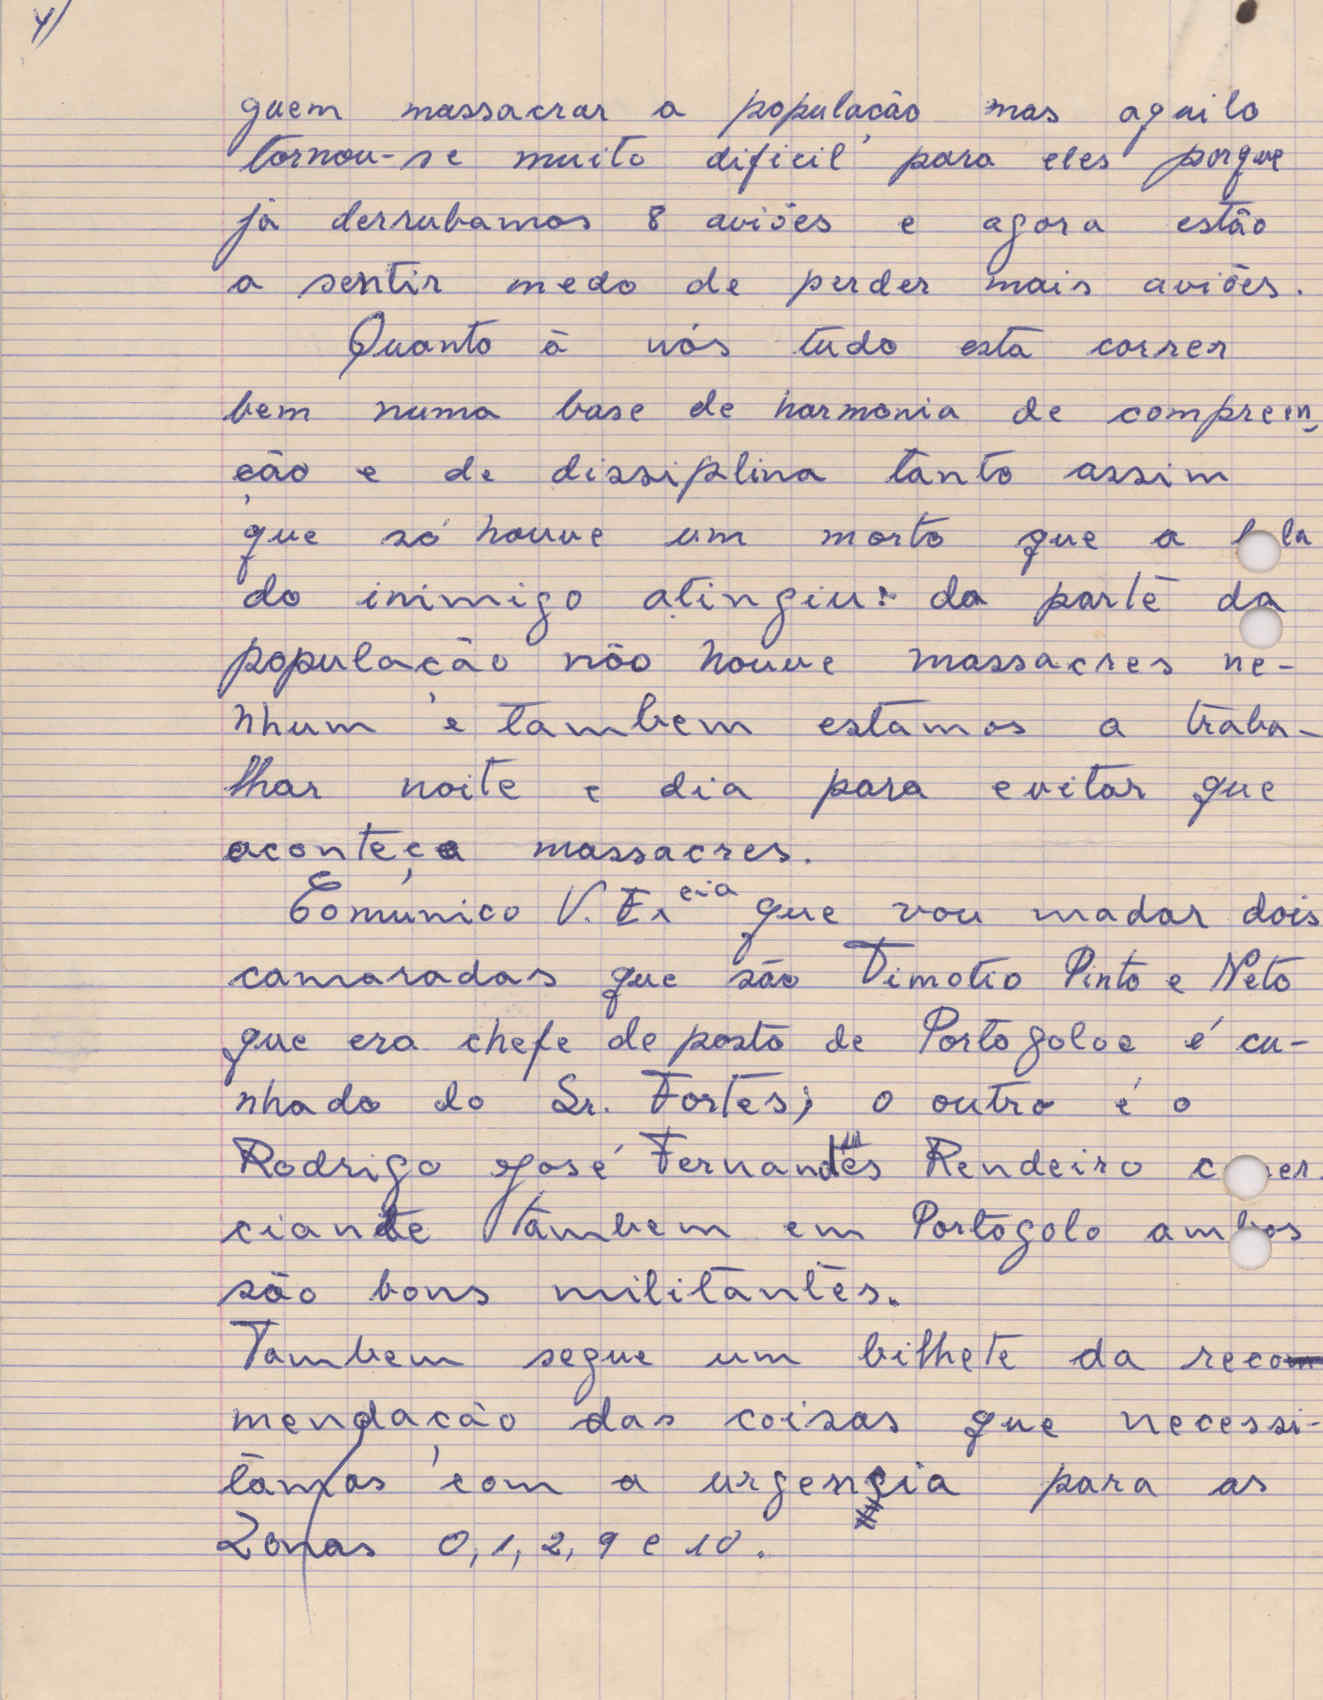 4/
guem massacrar a população mas aquilo
tornou-se muito dificil para eles porque
já derrubamos 8 aviões e agora estão
a sentir medo de perder mais aviões.
Quanto à nós tudo está correr
bem numa base de harmonia de compreen-
ção e de dissiplina tanto assim
que só houve um morto que a
do inimigo atingiu: da parte da
população não houve massacres ne-
nhum e tambem estamos a traba-
lhar noite e dia para evitar que
aconteça massacres.
Comunico V. Excia que vou madar dois
camaradas que são Timotio Pinto e Neto
que era chefe de posto de Portogoloe é cu-
nhado do Sr. Fortes; o outro é o
Rodrigo José Fernandes Rendeiro
ciante tambem em Portogolo ambos
são bons militantes.
Tambem segue um bilhete da reco
mendação das coisas que necessi-
tamos com a urgencia para as
Zonas 0, 1, 2, 9 e 10.